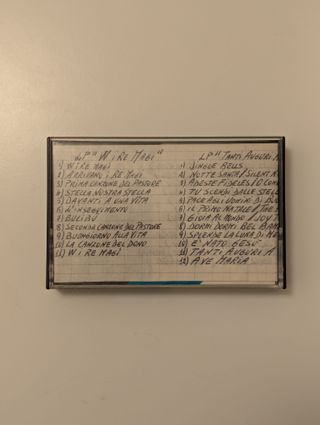 LP "W i RE MAGI"
1) W i RE MAGI
2) ARRIVANO i RE MAGI
3) PRIMA CANZONE DEL PASTORE
4) STELLA NOSTRA STELLA
5) DAVANTI A UNA VITA
6) L'INSEGUIMENTO
7) BULIBÙ
8) SECONDA CANZONE DEL PASTORE
9) BUONGIORNO ALLA VITA
10) LA CANZONE DEL DONO
11) W i RE MAGI
LP "TANTI AUGURI A
1) JINGLE BELLS
2) NOTTE SANTA / SILENT N
3) ADESTE FIDELES / O COM
4) TU SCENDI DALLE STEL
5) PACE AGLI UOMINI DI BU
6) IL PRIMO NATALE / THE F
7) GIOIA AL MONDO / JOY T
8) DORMI DORMI BEL BAM
9) SPLENDE LA LUNA DI
10) E' NATO GESU'
11) TANTI AUGURI A
12) AVE MARIA